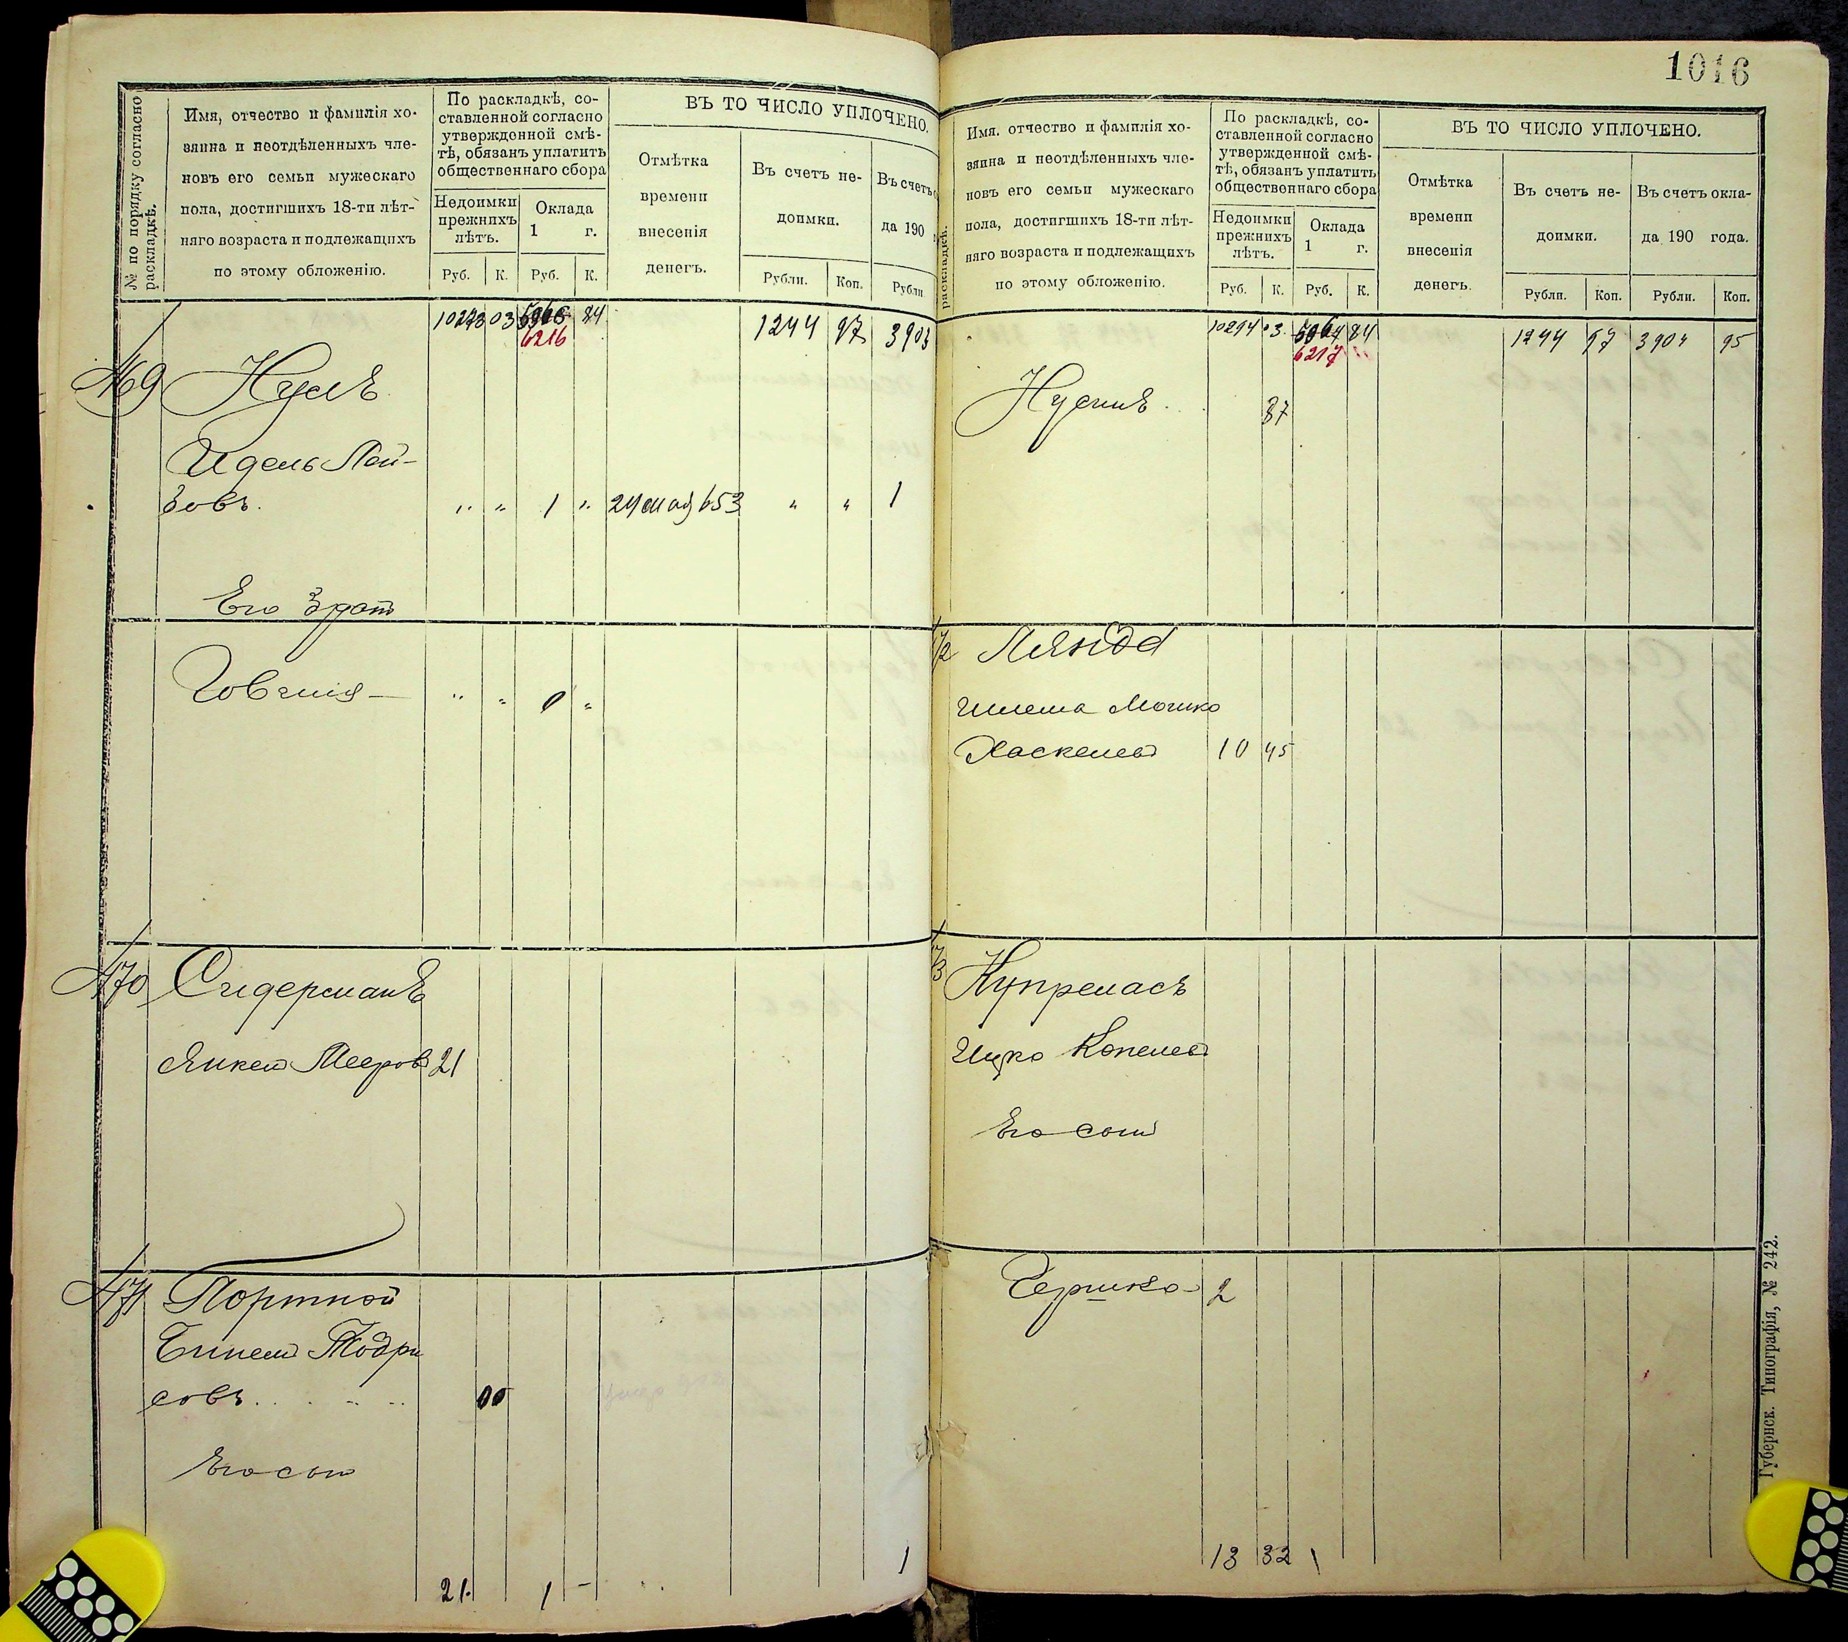 № по порядку согласно
раскладкѣ.
Имя, отчество и фамилія хо-
зяина и неотдѣленныхъ чле-
новъ его семьи мужескаго
пола, достигшихъ 18-ти лѣт-
няго возраста и подлежащихъ
по этому обложенію.
По раскладкѣ, со-
ставленной согласно
утвержденной смѣ-
тѣ, обязанъ уплатить
общественнаго сбора
Недоимки
прежнихъ
лѣтъ.
Оклада
1 г.
Руб. К. Руб. К.
ВЪ ТО ЧИСЛО УПЛОЧЕНО.
Отмѣтка
времени
внесенія
денегъ.
Въ счетъ не-
доимки.
Рубли. Коп.
Въ счетъ о
да 190
Рубли
10273 03 84 1244 97 3903
6216
469 Нусъ
Идель Лей-
зовъ. " " 1 " 24 мая 653 " " 1
Его братъ
Говшія " " 0 "
470 Сидерманъ
Янкель Мееровъ 21
471 Портной
Бинемъ Тодри
совъ
Его сынъ
21. 1 - 1
1016
раскладкѣ.
Имя. отчество и фамилія хо-
зяина и неотдѣленныхъ чле-
новъ его семьи мужескаго
пола, достигшихъ 18-ти лѣт-
няго возраста и подлежащихъ
по этому обложенію.
По раскладкѣ, со-
ставленной согласно
утвержденной смѣ-
тѣ, обязанъ уплатить
общественнаго сбора
Недоимки
прежнихъ
лѣтъ.
Оклада
1 г.
Руб. К. Руб. К.
ВЪ ТО ЧИСЛО УПЛОЧЕНО.
Отмѣтка
времени
внесенія
денегъ.
Въ счетъ не-
доимки.
Рубли. Коп.
Въ счетъ окла-
да 190 года.
Рубли. Коп.
10294 03 84 1244 97 3904 95
6217
Нусинъ 87
72 Лянда
Шлема Мошко
Хаскелевъ 10 45
73 Купремасъ
Ицко Копелевъ
Его сынъ
Гершко 2
13 32 1
Губернск. Типографія, № 242.